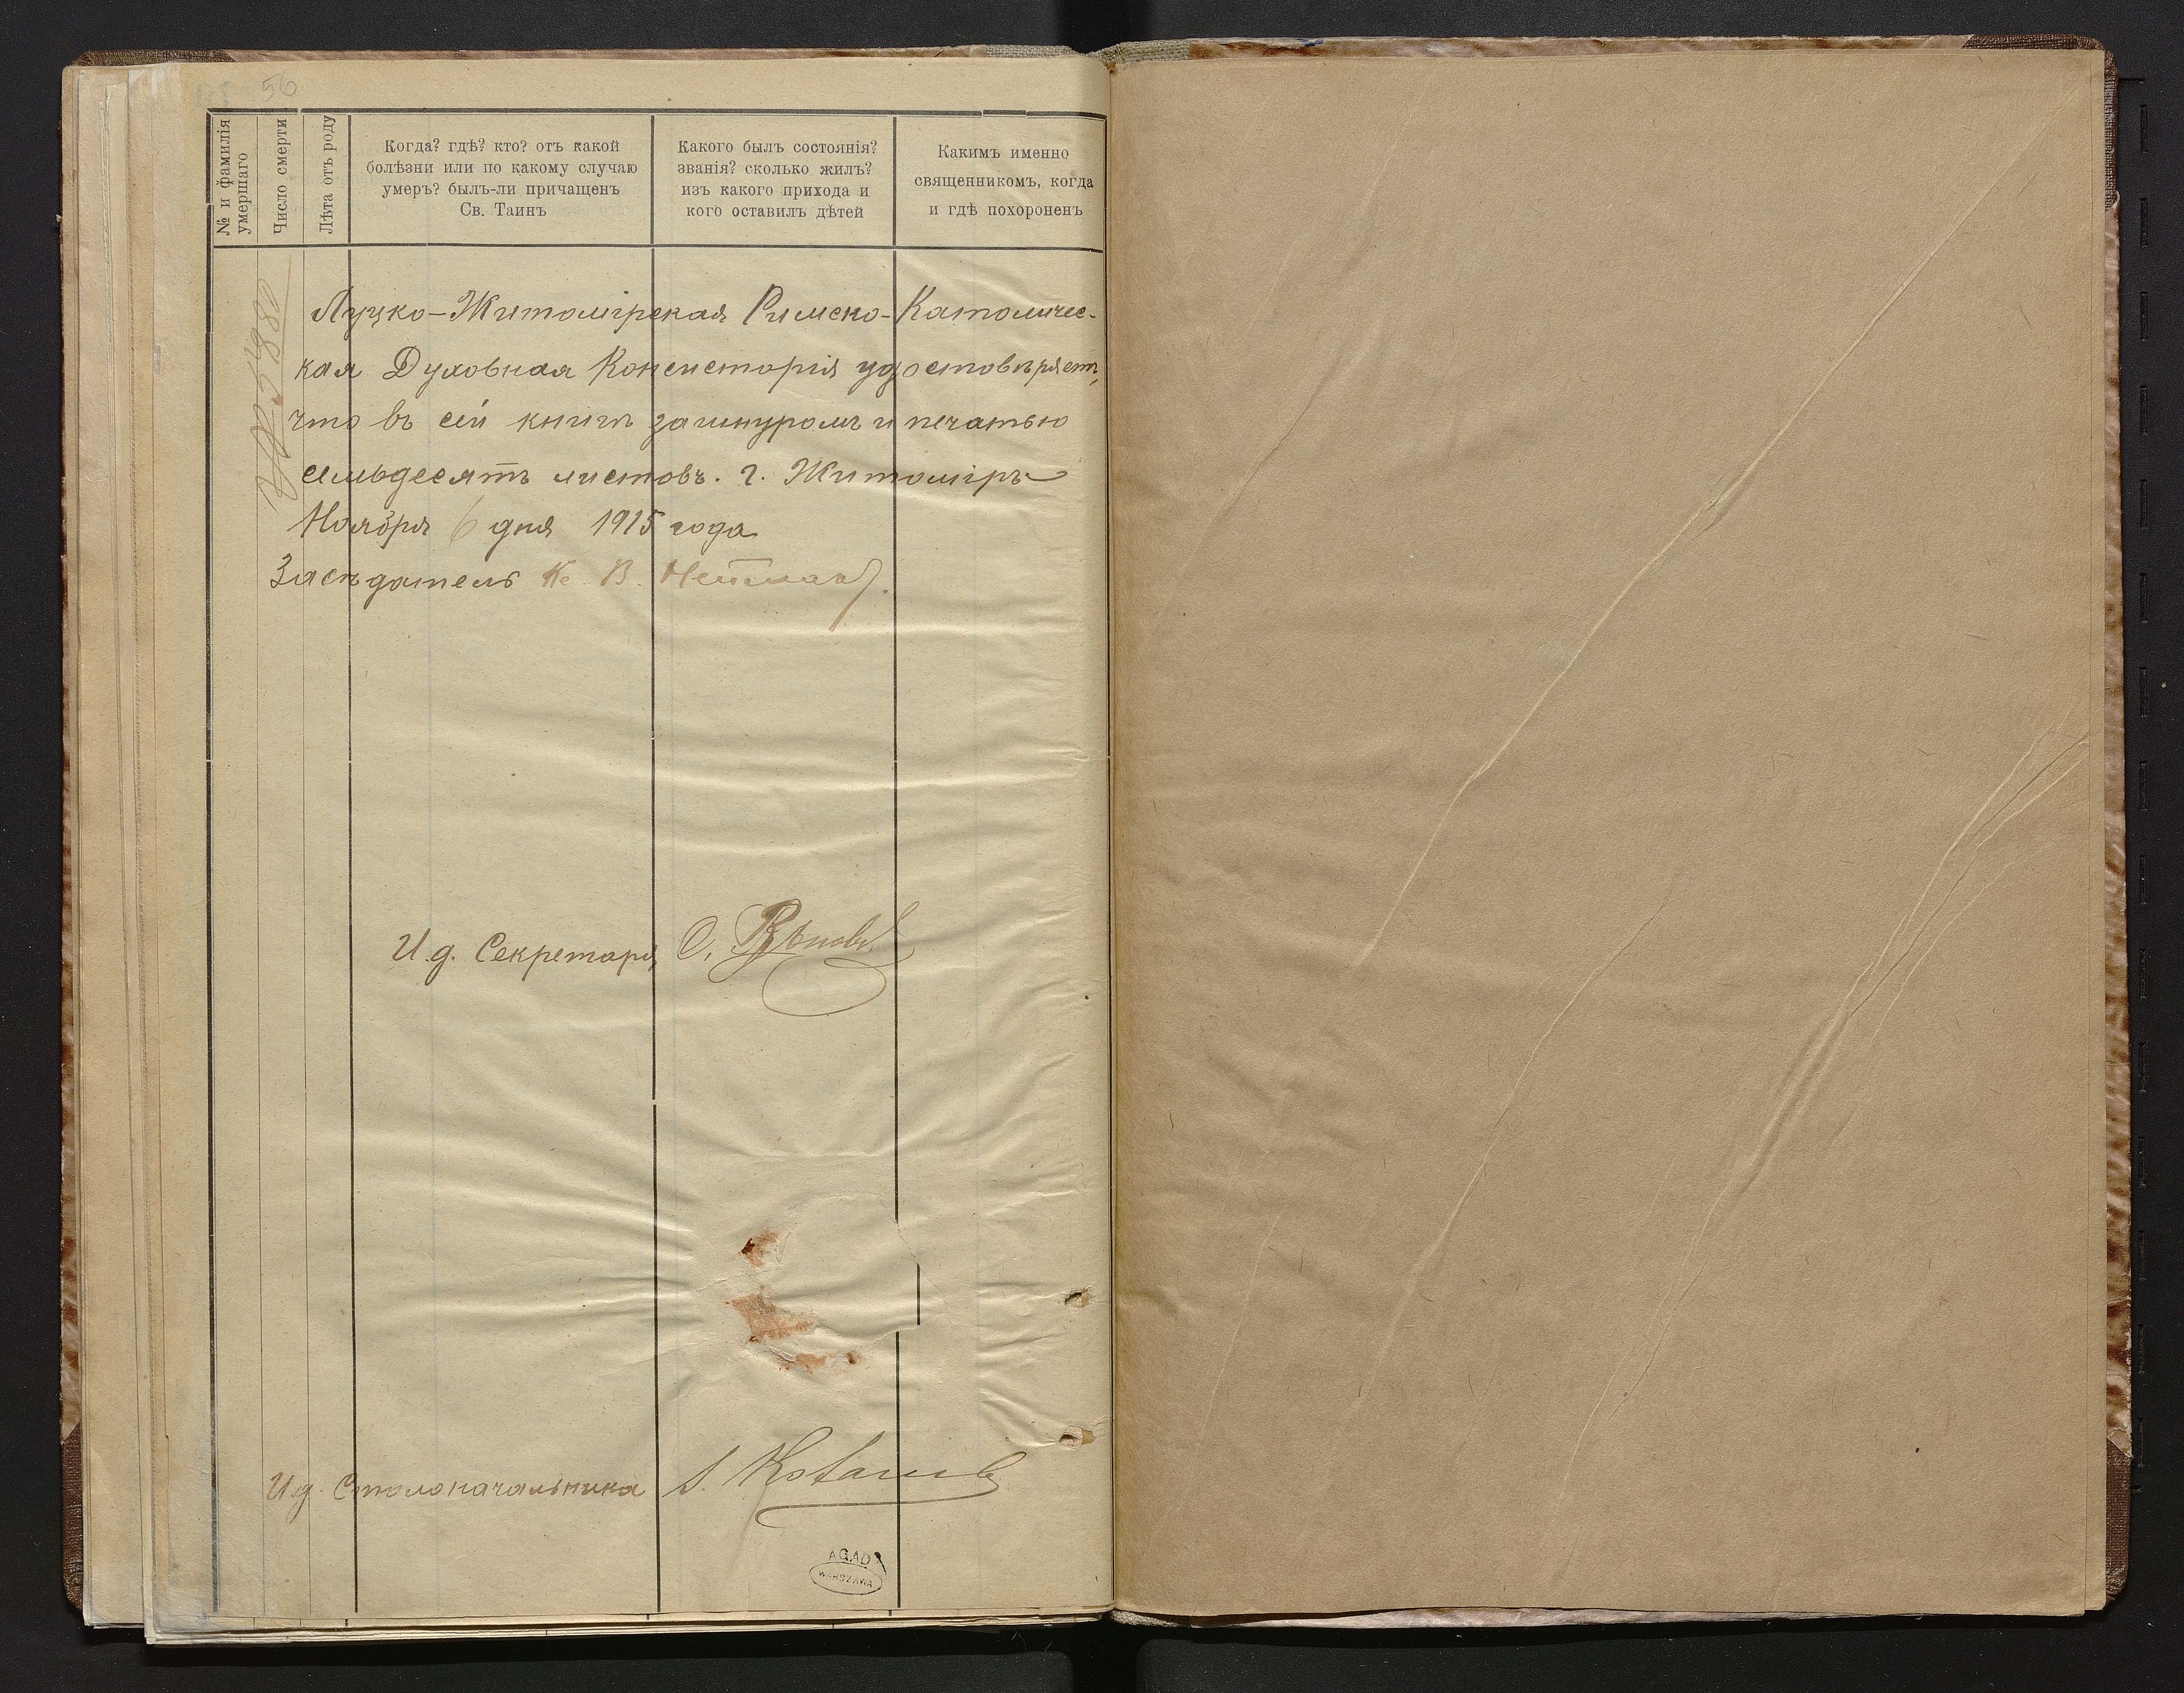 56
№ и фамилія умершаго
Число смерти
Лѣта отъ роду
Когда? гдѣ? кто? отъ какой
болѣзни или по какому случаю
умеръ? былъ-ли причащенъ
Св. Таинъ
Какого былъ состоянія?
званія? сколько жилъ?
изъ какого прихода и
кого оставилъ дѣтей
Какимъ именно
священникомъ, когда
и гдѣ похороненъ
Луцко-Житомірская Римско-Католичес-
кая Духовная Консисторія удостовѣряетъ,
что въ сей книгѣ за шнуромъ и печатью
семьдесятъ листовъ. г. Житоміръ
Ноября 6 дня 1915 года
Засѣдатель Кс. В.
И.д. Секретаря
И.д. Столоначальника
AGAD
WARSZAWA